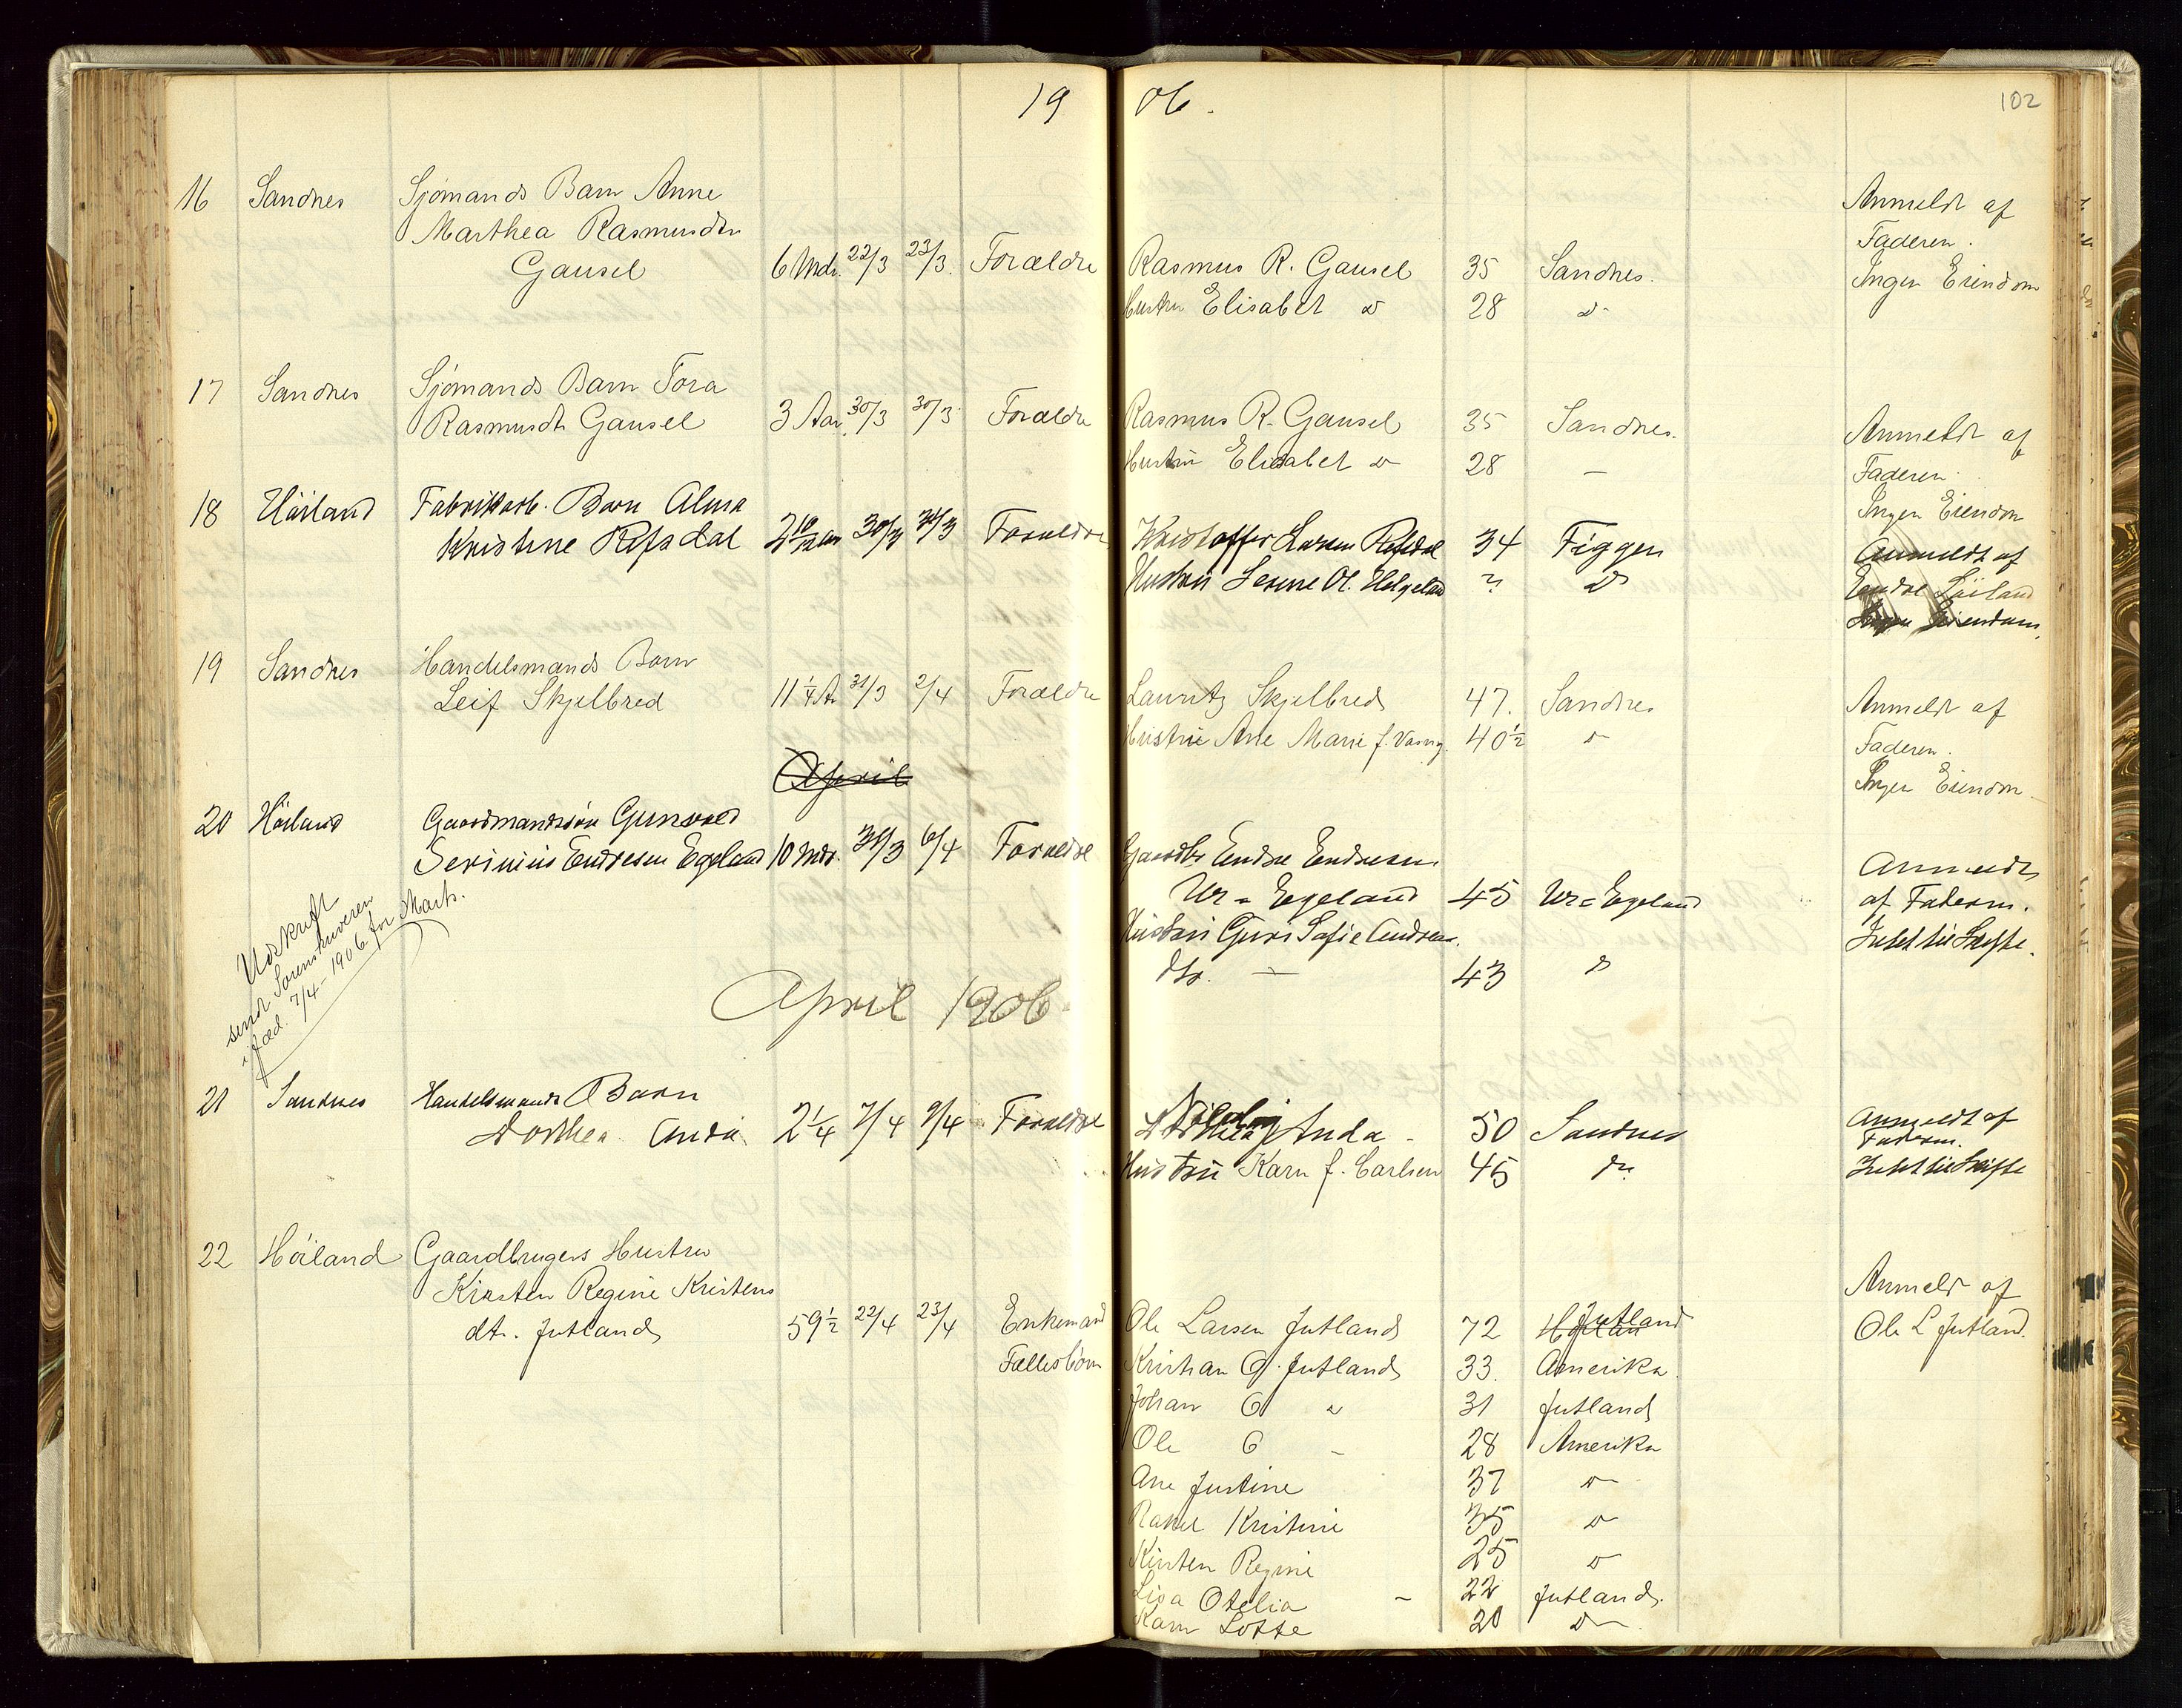 19 06.
102
16 Sandnes Sjömands Barn Anne
Marthea Rasmusdtr
Gausel 6 Mdr. 22/3 23/3. Forældre Rasmus R. Gausel 35 Sandnes.
Hustru Elisabet do 28 do
Anmeldt af
Faderen.
Ingen Eiendom
17 Sandnes Sjömands Barn Tora
Rasmusdt. Gausel 3 Aar 30/3 30/3 Forældre Rasmus R. Gausel 35 Sandnes.
Hustru Elisabet do 28 —
Anmeldt af
Faderen
Ingen Eiendom
18 Höiland Fabrikarb. Barn Alma
Kristine Refsdal 30/3 Forældre Kristoffer Larsen Refsdal 34 Figgen
Hustru Serine Ol. Helgeland ? do
Anmeldt af
Endre Höiland
Ingen Eiendom.
19 Sandnes Handelsmands Barn
Leif Skjelbred 11 1/4 A 31/3 2/4 Forældre Lauritz Skjelbred 47. Sandnes
Hustru Ane Marie f. 40 1/2 do
Anmeldt af
Faderen.
Ingen Eiendom
April
20 Höiland Gaardmandssön Gunvald
Serinius Endresen Egeland 10 Mdr. 31/3 6/4 Forældre Gaardbr Endre Endresen
Ur = Egeland 45 Ur = Egeland
Hustru Guri Sofie Andreas
dtr. — 43 do
Anmeldt
af Faderen.
Intet til Skifte.
Udskrift
sendt Sorenskriveren
i Jæd. 7/4 - 1906 for Marts.
April 1906
21 Sandnes Handelsmands Barn
Dorthea Anda 2 1/4 7/4 9/4 Forældre Nikolai Anda - 50 Sandnes
Hustru Karn f. Carlsen 45 do
Anmeldt af
Faderen.
Intet til Skifte
22 Höiland Gaardbrugers Hustru
Kirsten Regine Kristens
dtr. Jutland 59 1/2 22/4 23/4 Enkemand Ole Larsen Jutland 72 Jutland
Fællesbörn Kristian O. Jutland 33. Amerika
Johan O. do 31 Jutland
Ole O - 28 Amerika
Ane Justine 37 do
Rakel Kristine 35 do
Kirsten Regine 25 do
Lisa Otelia - 22 Jutland.
Karn Lotte 20 do
Anmeldt af
Ole L Jutland.